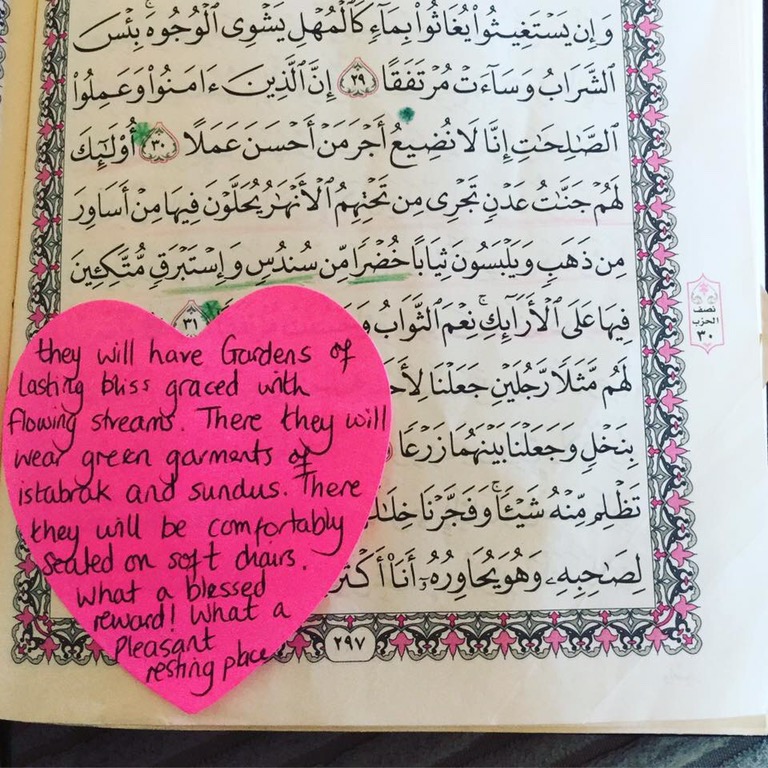 وَإِن يَسْتَغِيثُوا۟ يُغَاثُوا۟ بِمَآءٍ كَٱلْمُهْلِ يَشْوِى ٱلْوُجُوهَ ۚ بِئْسَ
ٱلشَّرَابُ وَسَآءَتْ مُرْتَفَقًا ٢٩ إِنَّ ٱلَّذِينَ ءَامَنُوا۟ وَعَمِلُوا۟
ٱلصَّـٰلِحَـٰتِ إِنَّا لَا نُضِيعُ أَجْرَ مَنْ أَحْسَنَ عَمَلًا ٣٠ أُو۟لَـٰٓئِكَ
لَهُمْ جَنَّـٰتُ عَدْنٍ تَجْرِى مِن تَحْتِهِمُ ٱلْأَنْهَـٰرُ يُحَلَّوْنَ فِيهَا مِنْ أَسَاوِرَ
مِن ذَهَبٍ وَيَلْبَسُونَ ثِيَابًا خُضْرًا مِّن سُندُسٍ وَإِسْتَبْرَقٍ مُّتَّكِـِٔينَ
فِيهَا عَلَى ٱلْأَرَآئِكِ ۚ نِعْمَ ٱلثَّوَابُ ٣١
لَهُم مَّثَلًا رَّجُلَيْنِ جَعَلْنَا
بِنَخْلٍ وَجَعَلْنَا بَيْنَهُمَا زَرْعًا
تَظْلِم مِّنْهُ شَيْـًٔا ۚ وَفَجَّرْنَا
لِصَـٰحِبِهِۦ وَهُوَ يُحَاوِرُهُۥٓ أَنَا۠
نصف
الحزب
٣٠
they will have Gardens of
lasting bliss graced with
flowing streams. There they will
wear green garments of
istabrak and sundus. There
they will be comfortably
seated on soft chairs.
What a blessed
reward! What a
pleasant
resting place
٢٩٧